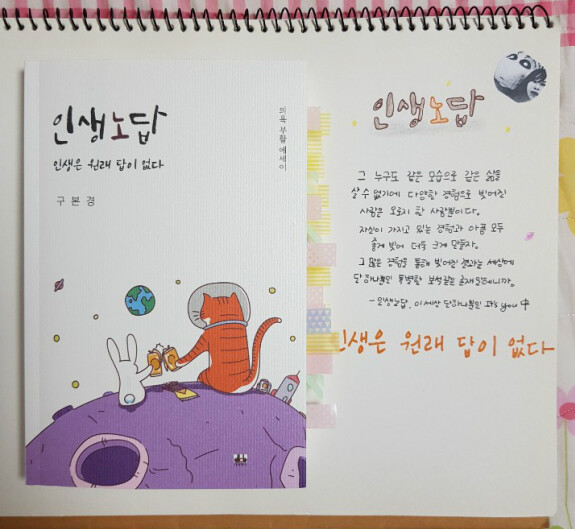 인생노답
인생은 원래 답이 없다
구본경
의욕 부활 에세이
인생노답
그 누구도 같은 모습으로 같은 삶을
살 수 없기에 다양한 경험으로 빚어진
사람은 오로지 한 사람뿐이다.
자신이 가지고 있는 경험과 아픔 모두
술게 빚어 더욱 크게 만들자.
그 많은 경험을 통해 빚어진 결과는 세상에
단 하나뿐인 특별한 보석같은 존재일테니까.
- 인생노답, 이 세상 단 하나뿐인 it's you 中
인생은 원래 답이 없다